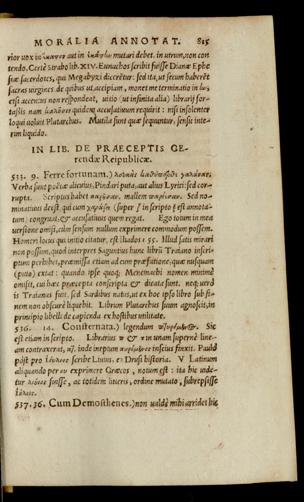 MORALIA ANNOTAT. 815
rior vox in aut in mutari debet. in utrum, non con
tendo. Certè Strabo lib. XIV. Eunuchos scribit fuisse Dianæ Ephe
siæ sacerdotes, qui Megabyzi dicerẽtur: sed ita, ut secum haberẽt
sacras virgines. de quibus ut accipiam, monet me terminatio in
etsi accentus non respondeat, vitio (ut infinita alia) librarij for-
tassis nam quidem accusativum requirit: nisi insolenter
loqui voluit Plutarchus. Mutila sunt quæ sequuntur. sensit inte-
rim liquido.
IN LIB. DE PRAECEPTIS GE-
rendæ Reipublicæ.
533. 9. Ferre fortunam.)
Verba sunt poëtæ alicuius, Pindari puta, aut alius Lyrici: sed cor-
rupta. Scriptus habet mallem Sed no-
minativus deest. qui cum (super in scripto est annota-
tum) congruat, & accusativum quem regat. Ego totum in mea
versione omisi, cùm sensum nullum exprimere commodum possem.
Homeri locus qui initio citatur, est Iliados ι 55. Illud satis mirari
non possum, quod interpres Saguntius hunc librũ Traiano inscri-
ptum perhibet, præmissa etiam ad eum præfatione, quæ nusquam
(puto) extat: quando ipse quoq; Menemachi nomen minimè
omisit, cui hæc præcepta conscripta & dicata sunt. neq; verò
is Traianus fuit, sed Sardibus natus, ut ex hoc ipso libro sub fi-
nem non obscurè liquebit. Librum Plutarchus suum agnoscit, in
principio libelli de capienda ex hostibus utilitate.
536. 14. Consternata.) legendum Sic
est etiam in scripto. Librarius & in unam supernè line-
am contraxerat, inde ineptum inscius finxit. Paulò
pòst pro scribe Livius. er Drusi historia. V Latinum
aliquando per ου exprimere Græcos, notum est: ita hic vide-
tur fuisse, ac totidem literis, ordine mutato, subrepsisse

537. 36. Cum Demosthenes.) non valdè mihi arridet hic